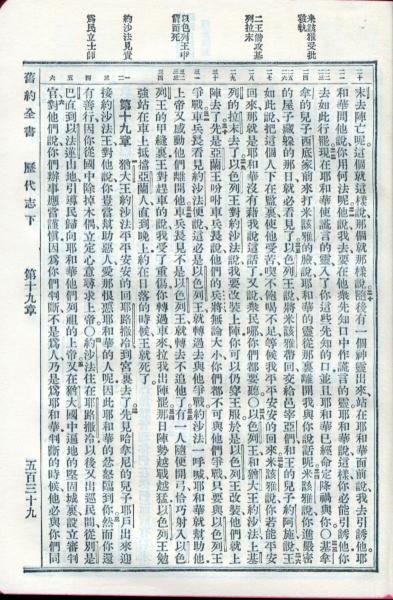 米該雅受批
二王備攻基
列拉末
以色列王中
箭而死
約沙法見責
爲民立士師
末去陣亡呢這個就這樣說那個就那樣說隨後有一個神靈出來站在耶和華面前說我去引誘他耶
和華問他說你用何法呢他說我去要在他衆先知口中作謊言的靈耶和華說這樣你必能引誘他你
去如此行罷現在耶和華使謊言的靈入了你這些先知的口並且耶和華已經命定降禍與你○基拿
拿的兒子西底家前來打米該雅的臉說耶和華的靈從那裏離開我與你說話呢米該雅說你進嚴密
的屋子藏躱的那日就必看見了以色列王說將米該雅帶回交給邑宰亞們和王的兒子約阿施說王
如此說把這個人下在監裏使他受苦喫不飽喝不足等候我平平安安的回來米該雅說你若能平安
回來那就是耶和華沒有藉我說這話了又說衆民哪你們都要聽○以色列王和猶大王約沙法上基
列的拉末去了以色列王對約沙法說我要改裝上陣你可以仍穿王服於是以色列王改裝他們就上
陣去了先是亞蘭王吩咐車兵長說他們的兵將無論大小你們都不可與他們爭戰只要與以色列王
爭戰車兵長看見約沙法便說這必是以色列王就轉過去與他爭戰約沙法一呼喊耶和華就幫助他
上帝又感動他們離開他車兵長見不是以色列王就轉去不追他了有一人隨便開弓恰巧射入以色
列王的甲縫裏王對趕車的說我受了重傷你轉過車來拉我出陣罷那日陣勢越戰越猛以色列王勉
強站在車上抵當亞蘭人直到晚上約在日落的時候王就死了
第十九章 猶大王約沙法平平安安的回耶路撒冷到宮裏去了先見哈拿尼的兒子耶戶出來迎
接約沙法王對他說你豈當幫助惡人愛那恨惡耶和華的人呢因此耶和華的忿怒臨到你然而你還
有善行因你從國中除掉木偶立定心意尋求上帝○約沙法住在耶路撒冷以後又出巡民間從別是
巴直到以法蓮山地引導民歸向耶和華他們列祖的上帝又在猶大國中遍地的堅固城裏設立審判
官對他們說你們辦事應當謹慎因爲你們判斷不是爲人乃是爲耶和華判斷的時候他必與你們同
舊約全書 歷代志下 第十九章 五百三十九